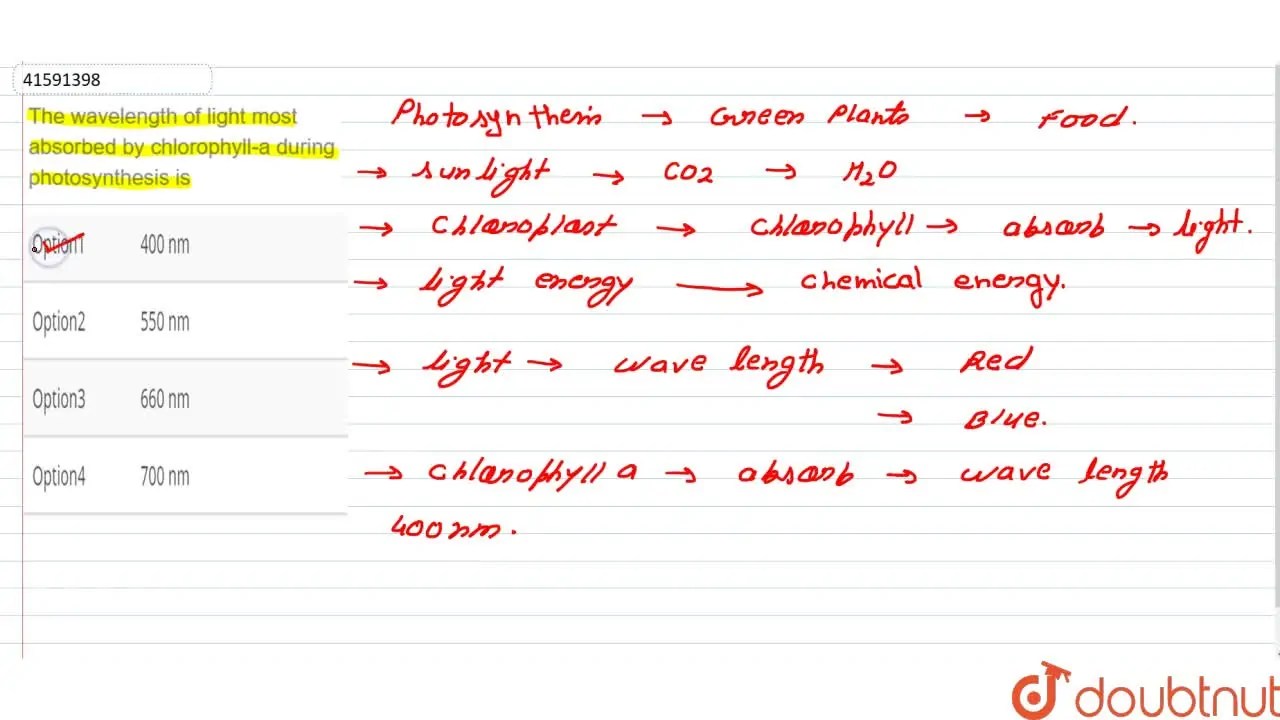 41591398
The wavelength of light most
absorbed by chlorophyll-a during
photosynthesis is
Option1 400 nm
Option2 550 nm
Option3 660 nm
Option4 700 nm
Photosynthesis → Green Plants → Food.
→ sunlight → CO2 → H2O
→ chloroplast → chlorophyll → absorb → light.
→ light energy → chemical energy.
→ light → wave length → Red
→ Blue.
→ chlorophyll a → absorb → wave length
400 nm.
doubtnut